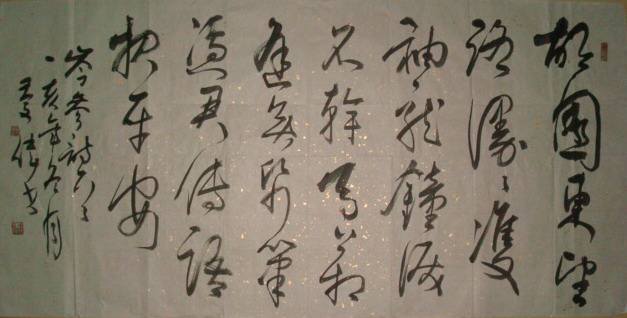 故園東望
路漫々雙
袖龍鐘淚
不幹馬上相
逢無紙筆
憑君傳語
報平安
岑參詩
亥年冬月
書